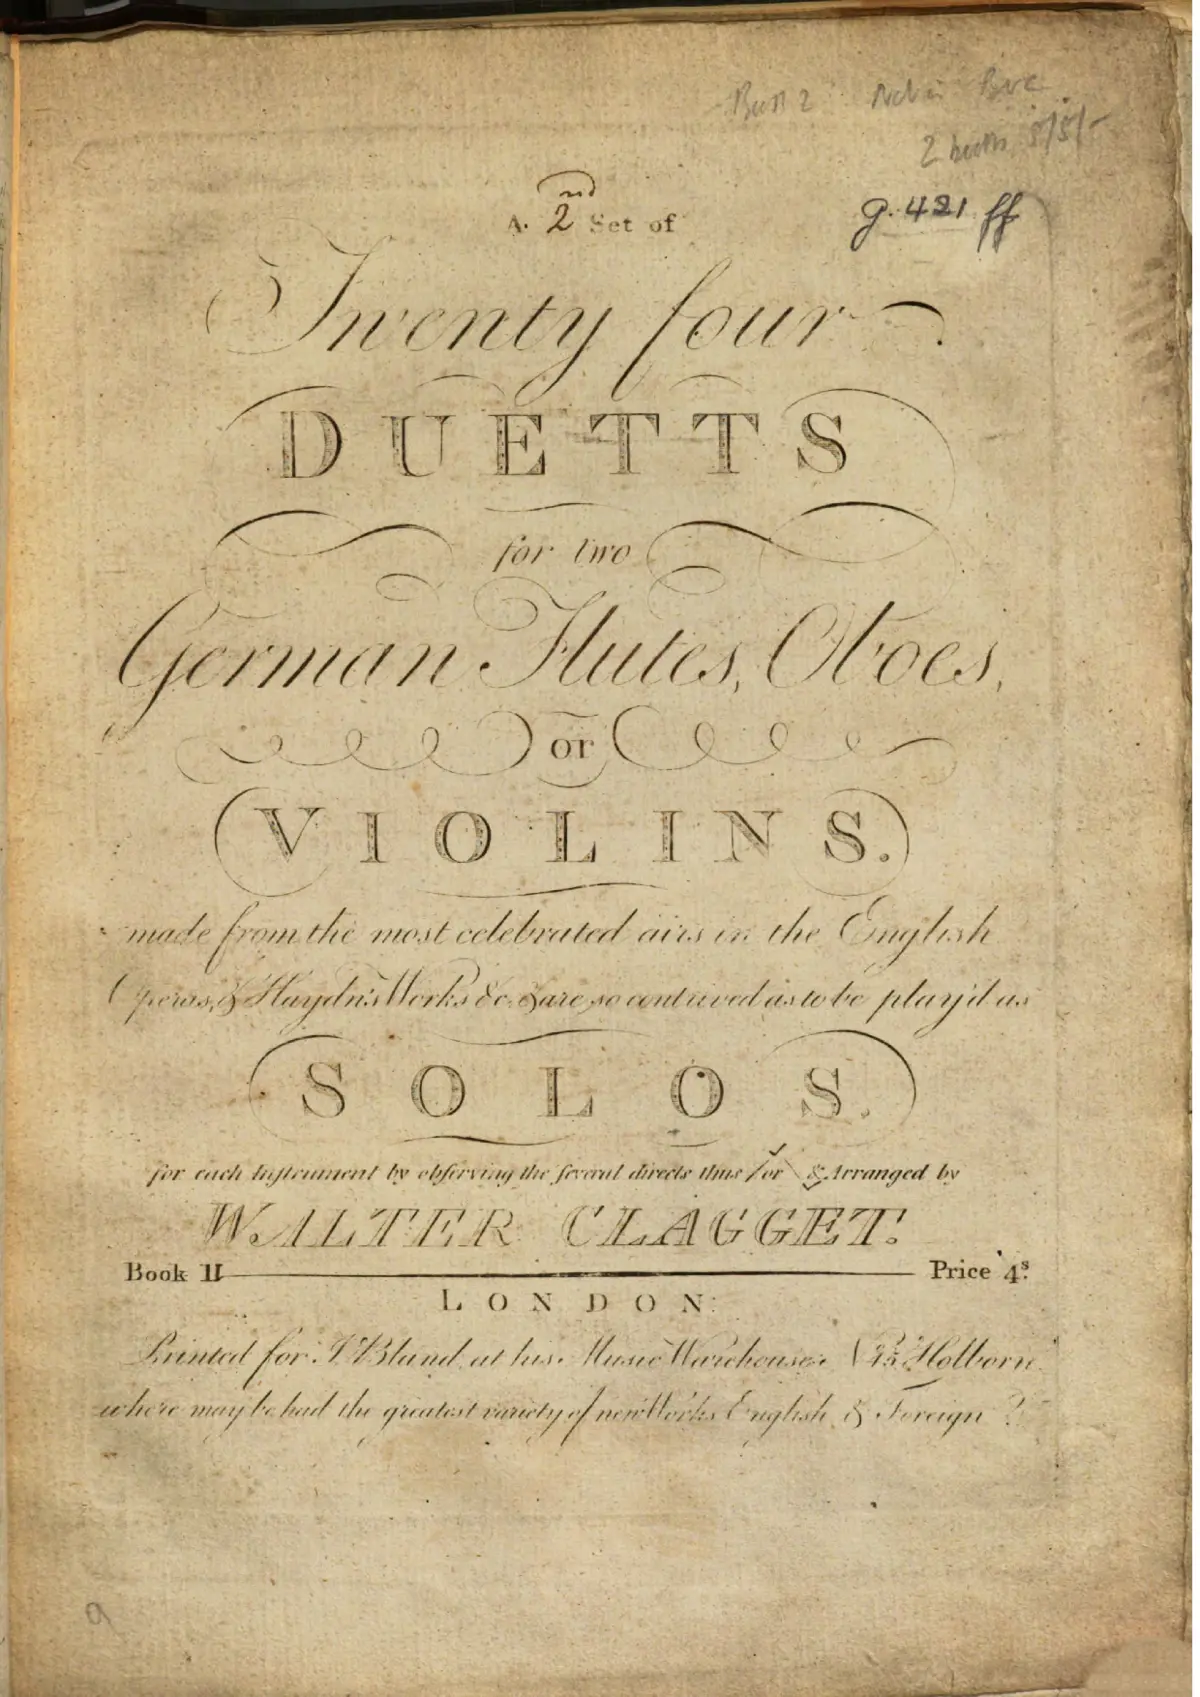 2 books 5/5/-
g. 421 ff
A. 2nd Set of
Twenty four
DUETTS
for two
German Flutes, Oboes,
or
VIOLINS.
made from the most celebrated airs in the English
Operas, & Haydn's Works &c. & are so contrived as to be play'd as
SOLOS.
for each Instrument by observing the several directs thus / or \ & Arranged by
WALTER CLAGGET.
Book II Price 4s.
LONDON:
Printed for J. Bland at his Music Warehouse No. 45 Holborn
where may be had the greatest variety of new Works English & Foreign